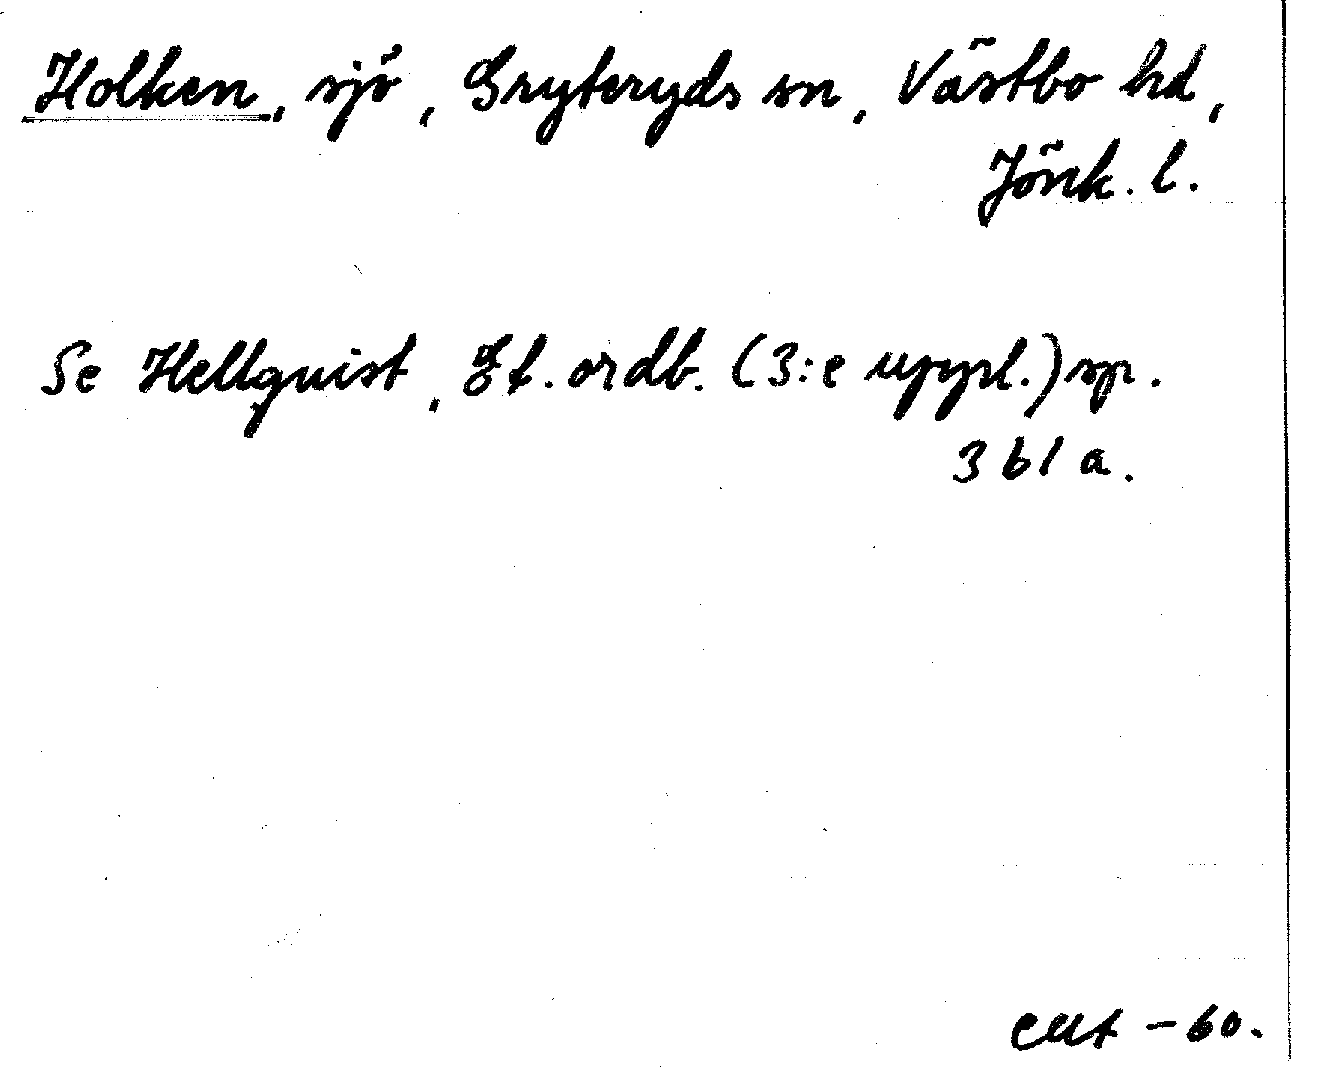 Holken, sjö, Gryteryds sn, Västbo hd,
Jönk. l.
Se Hellquist, Et. ordb. (3:e uppl.) sp.
361 a.
CUt -60.